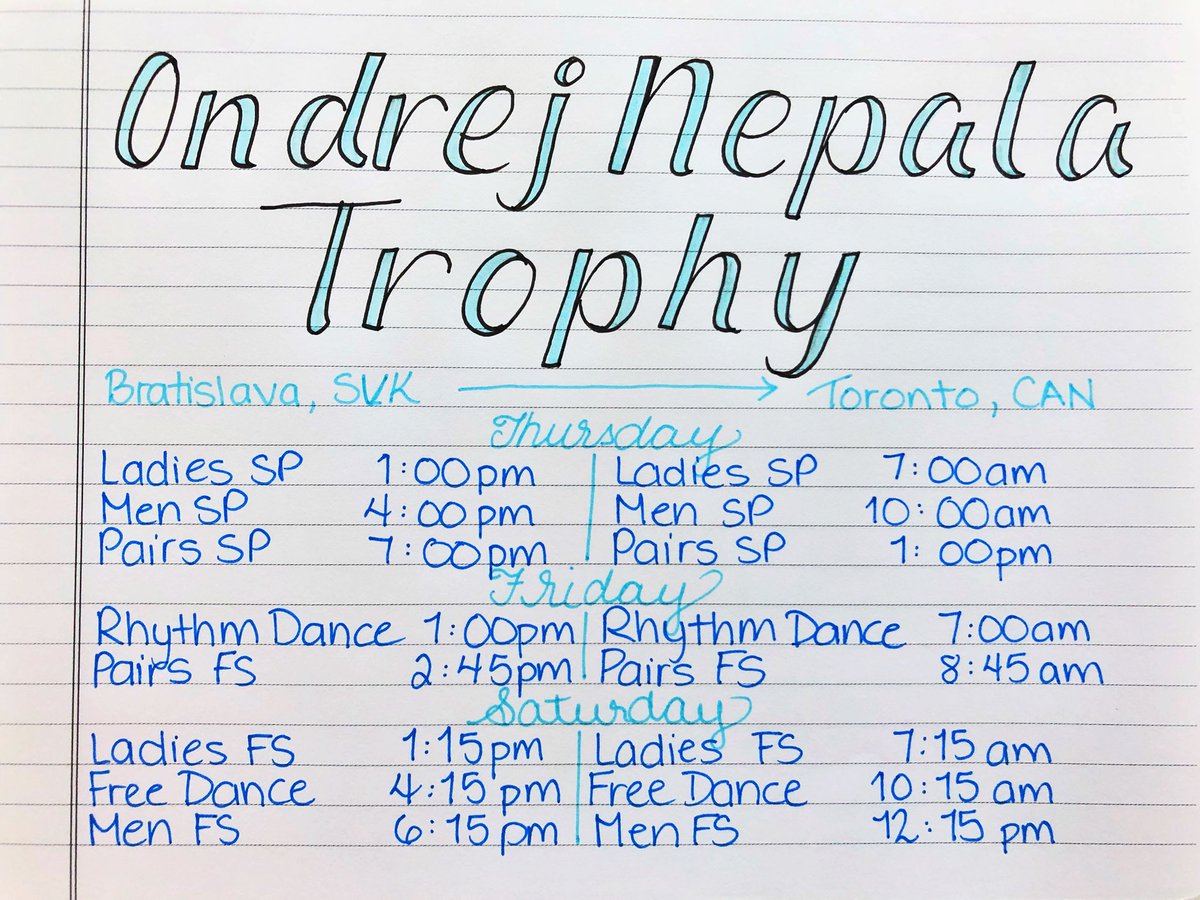 Ondrej Nepala
Trophy
Bratislava, SVK → Toronto, CAN
Thursday
Ladies SP 1:00pm | Ladies SP 7:00am
Men SP 4:00pm | Men SP 10:00am
Pairs SP 7:00pm | Pairs SP 1:00pm
Friday
Rhythm Dance 1:00pm | Rhythm Dance 7:00am
Pairs FS 2:45pm | Pairs FS 8:45am
Saturday
Ladies FS 1:15pm | Ladies FS 7:15am
Free Dance 4:15pm | Free Dance 10:15am
Men FS 6:15pm | Men FS 12:15pm